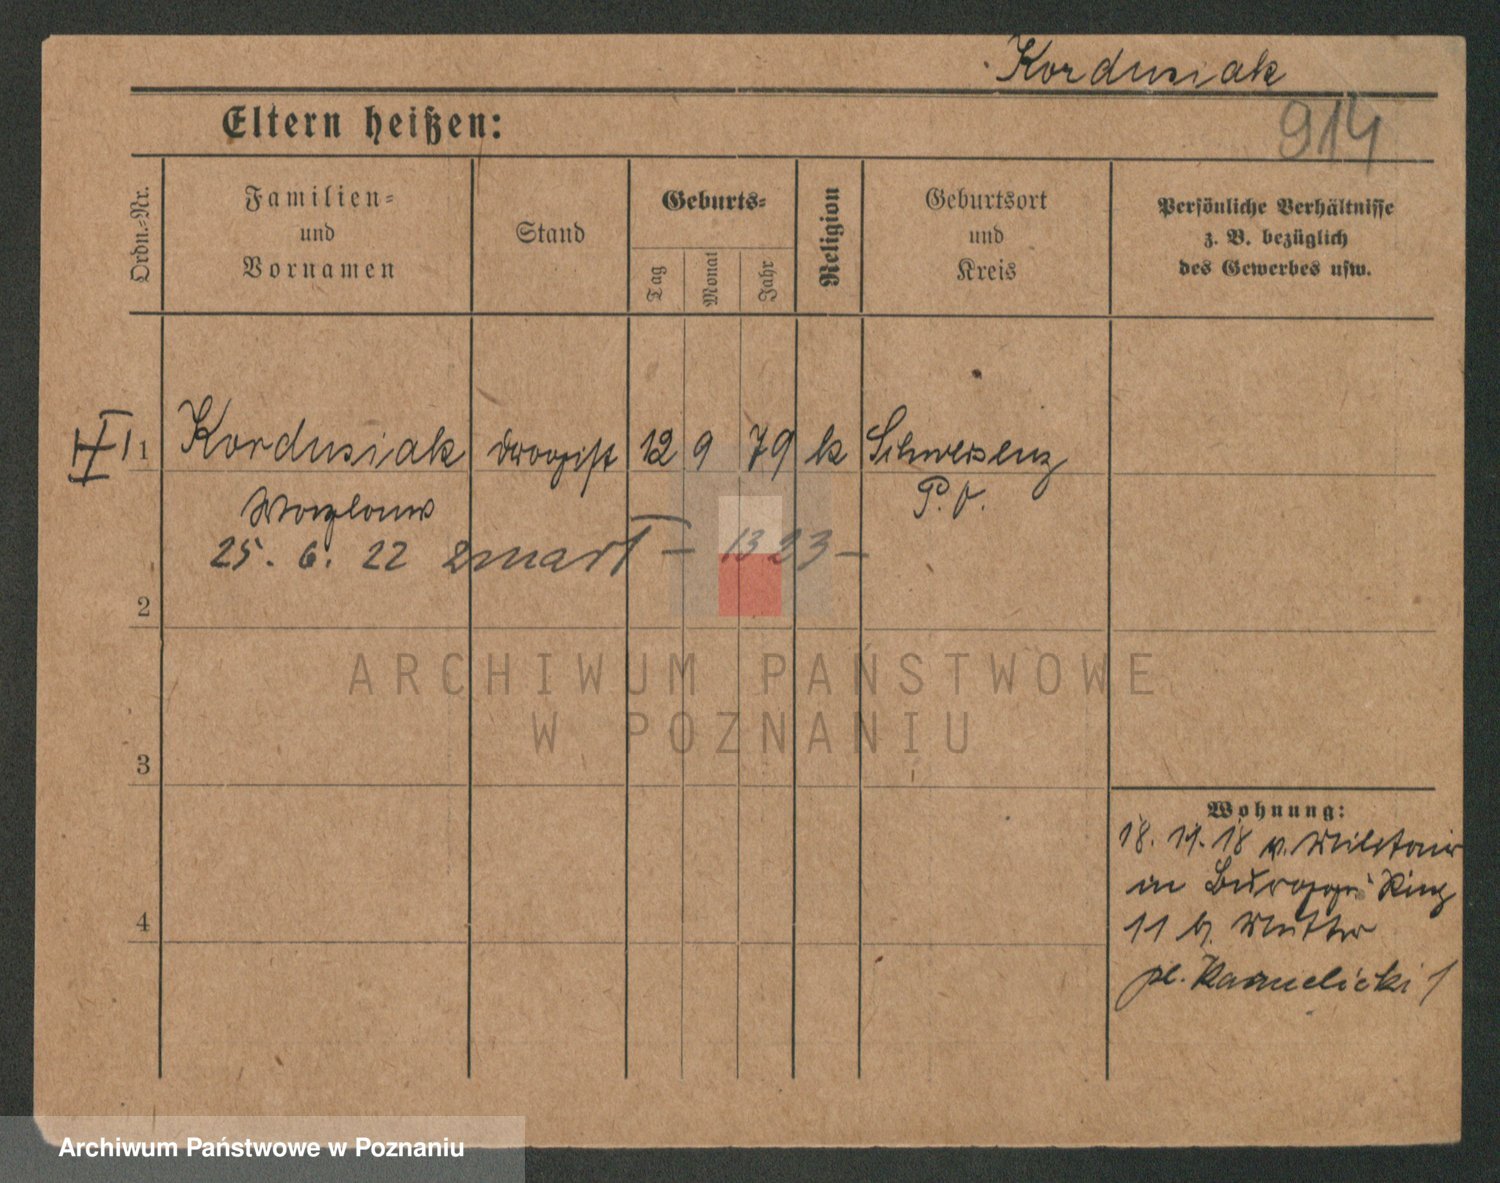 Kordusiak
914
Eltern heißen:
Ordn.-Nr.
Familien-
und
Vornamen
Stand
Geburts-
Tag
Monat
Jahr
Religion
Geburtsort
und
Kreis
Persönliche Verhältnisse
z. B. bezüglich
des Gewerbes usw.
1 Kordusiak Drogist 12 9 79 k Schwersenz
P. O.
25. 6. 22 zmarł – 1323 –
2
ARCHIWUM PAŃSTWOWE
W POZNANIU
3
Wohnung:
18. 11. 18 v. Militär
in Ring
4
11 b. Mutter
pl. Karmelicki 1
Archiwum Państwowe w Poznaniu